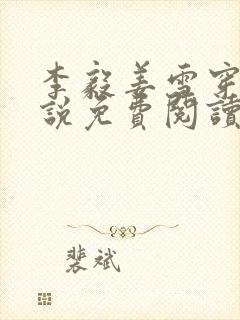 李毅姜雪穿
說免費閱讀
裴斌